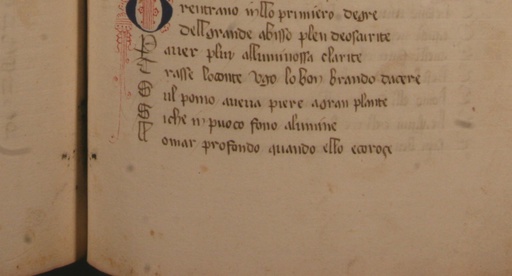 rentrano in llo primiero degre
dell grande abisso plen deoscurite
auer plur alluminossa clarite
rasse loconte Vgo lo bon brando dacere
ul pomo aueua piere agran plante
iche in puoco fono alumine
omar profondo quando ello ecoroçe